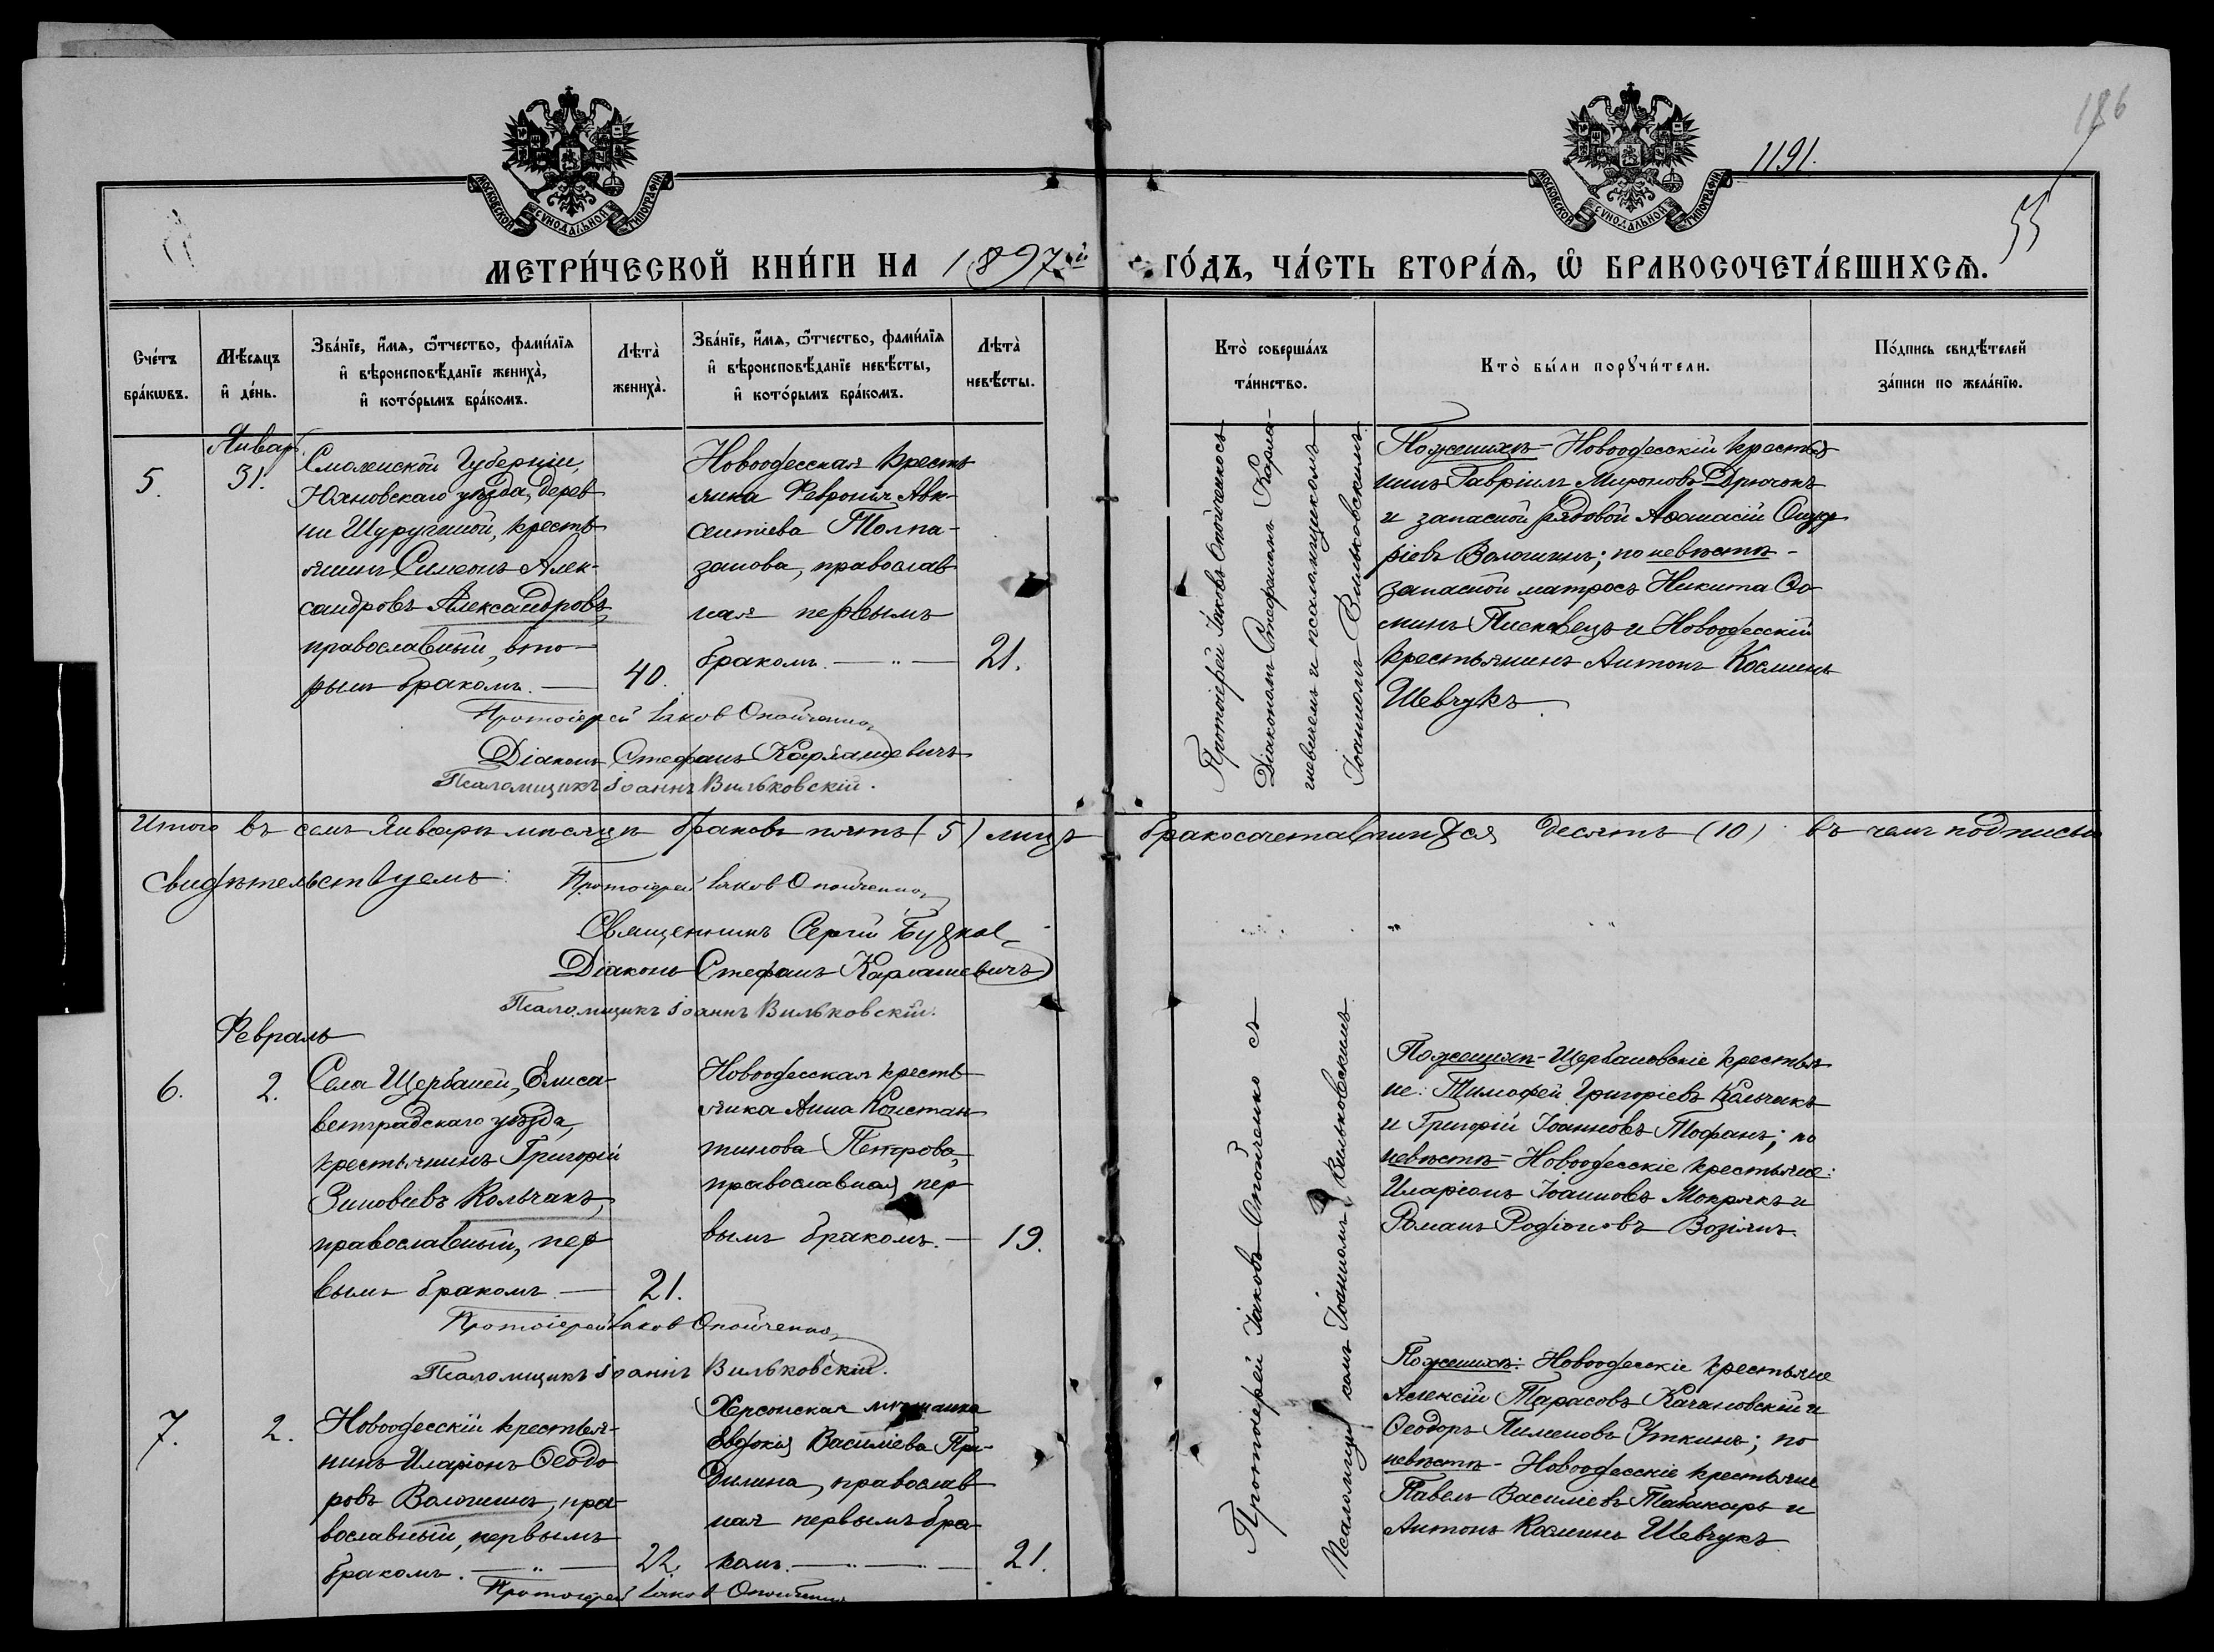 186
1191.
55
МОСКОВСКОЙ СѴНОДАЛЬНОЙ ТИПОГРАФІИ
МОСКОВСКОЙ СѴНОДАЛЬНОЙ ТИПОГРАФІИ
МЕТРИ́ЧЕСКОЙ КНИ́ГИ НА 1897й ГО́ДЪ, ЧА́СТЬ ВТОРА́Ѧ, Ѽ БРАКОСОЧЕТА́ВШИХСѦ.
Сче́тъ бра́кѡвъ.
Мѣ́сяцъ и҆ де́нь.
Зва́нїе, и҆́мѧ, ѻ҆́тчество, фами́лїѧ
и҆ вѣроисповѣ́данїе жениха̀,
и҆ кото́рымъ бра́комъ.
Лѣта̀ жениха̀.
Зва́нїе, и҆́мѧ, ѻ҆́тчество, фами́лїѧ
и҆ вѣроисповѣ́данїе невѣ́сты,
и҆ кото́рымъ бра́комъ.
Лѣта̀ невѣ́сты.
Кто̀ соверша́лъ
та́инство.
Кто̀ бы́ли порꙋчи́тели.
По́дпись свидѣ́телей
за́писи по жела́нїю.
Январ.
5.
31.
Смоленской Губерніи,
Юхновскаго уѣзда, дерев
ни, кресть
янинъ Симеонъ Алек-
сандровъ Александровъ,
православный, вто-
рымъ бракомъ.
40.
Новоодесская кресть
янка Февронія Авк-
сентіева Толпа-
занова, православ
ная первымъ
бракомъ.
21.
Протоіерей Іаковъ Опойченко съ
Діакономъ Стефаномъ Карма-
шевичемъ и псаломщикомъ
Іоанномъ Вильковскимъ.
По женихѣ - Новоодесскій крестья
нинъ Гавріилъ Мироновъ Дрючокъ
и запасной рядовой Аѳанасій Онуф
ріевъ Вологинъ; по невѣстѣ -
запасной матросъ Никита Ѳо
минъ Писковецъ и Новоодесскій
крестьянинъ Антонъ Косминъ
Шевчукъ.
Протоіерей Іаковъ Опойченко
Діаконъ Стефанъ Кармашевичъ
Псаломщикъ Іоаннъ Вильковскій.
Итого въ семъ Январѣ мѣсяцѣ браковъ пять (5) лицъ бракосочетавшихся десять (10) въ чемъ подписью
свидѣтельствуемъ:
Протоіерей Іаковъ Опойченко
Священникъ Сергій
Діаконъ Стефанъ Кармашевичъ
Псаломщикъ Іоаннъ Вильковскій.
Февраль
6.
2.
Села Щербаней, Елиса-
ветградскаго уѣзда,
крестьянинъ Григорій
Зиновіевъ Кольчакъ,
православный, пер
вымъ бракомъ.
21.
Новоодесская кресть-
янка Анна Констан
тинова Петрова,
православная, пер
вымъ бракомъ.
19.
Протоіерей Іаковъ Опойченко съ
Псаломщикомъ Іоанномъ Вильковскимъ
По женихѣ - Щербановскіе крестья
не: Тимофей Григоріевъ Кольчакъ
и Григорій Іоанновъ Тофанъ; по
невѣстѣ - Новоодесскіе крестьяне:
Иларіонъ Іоанновъ Мокрякъ и
Романъ Родіоновъ Возіянъ.
Протоіерей Іаковъ Опойченко
Псаломщикъ Іоаннъ Вильковскій.
7.
2.
Новоодесскій крестья-
нинъ Иларіонъ Ѳеодо
ровъ Вологинъ, пра-
вославный, первымъ
бракомъ.
22.
Херсонская мѣщанка
Евдокія Василіева При-
дилина, православ
ная первымъ бра-
комъ.
21.
По женихѣ: Новоодесскіе крестьяне
Алексій Тарасовъ Качановскій и
Ѳеодоръ Пименовъ Уткинъ; по
невѣстѣ - Новоодесскіе крестьяне
Павелъ Василіевъ Табакаръ и
Антонъ Косминъ Шевчукъ.
Протоіерей Іаковъ Опойченко